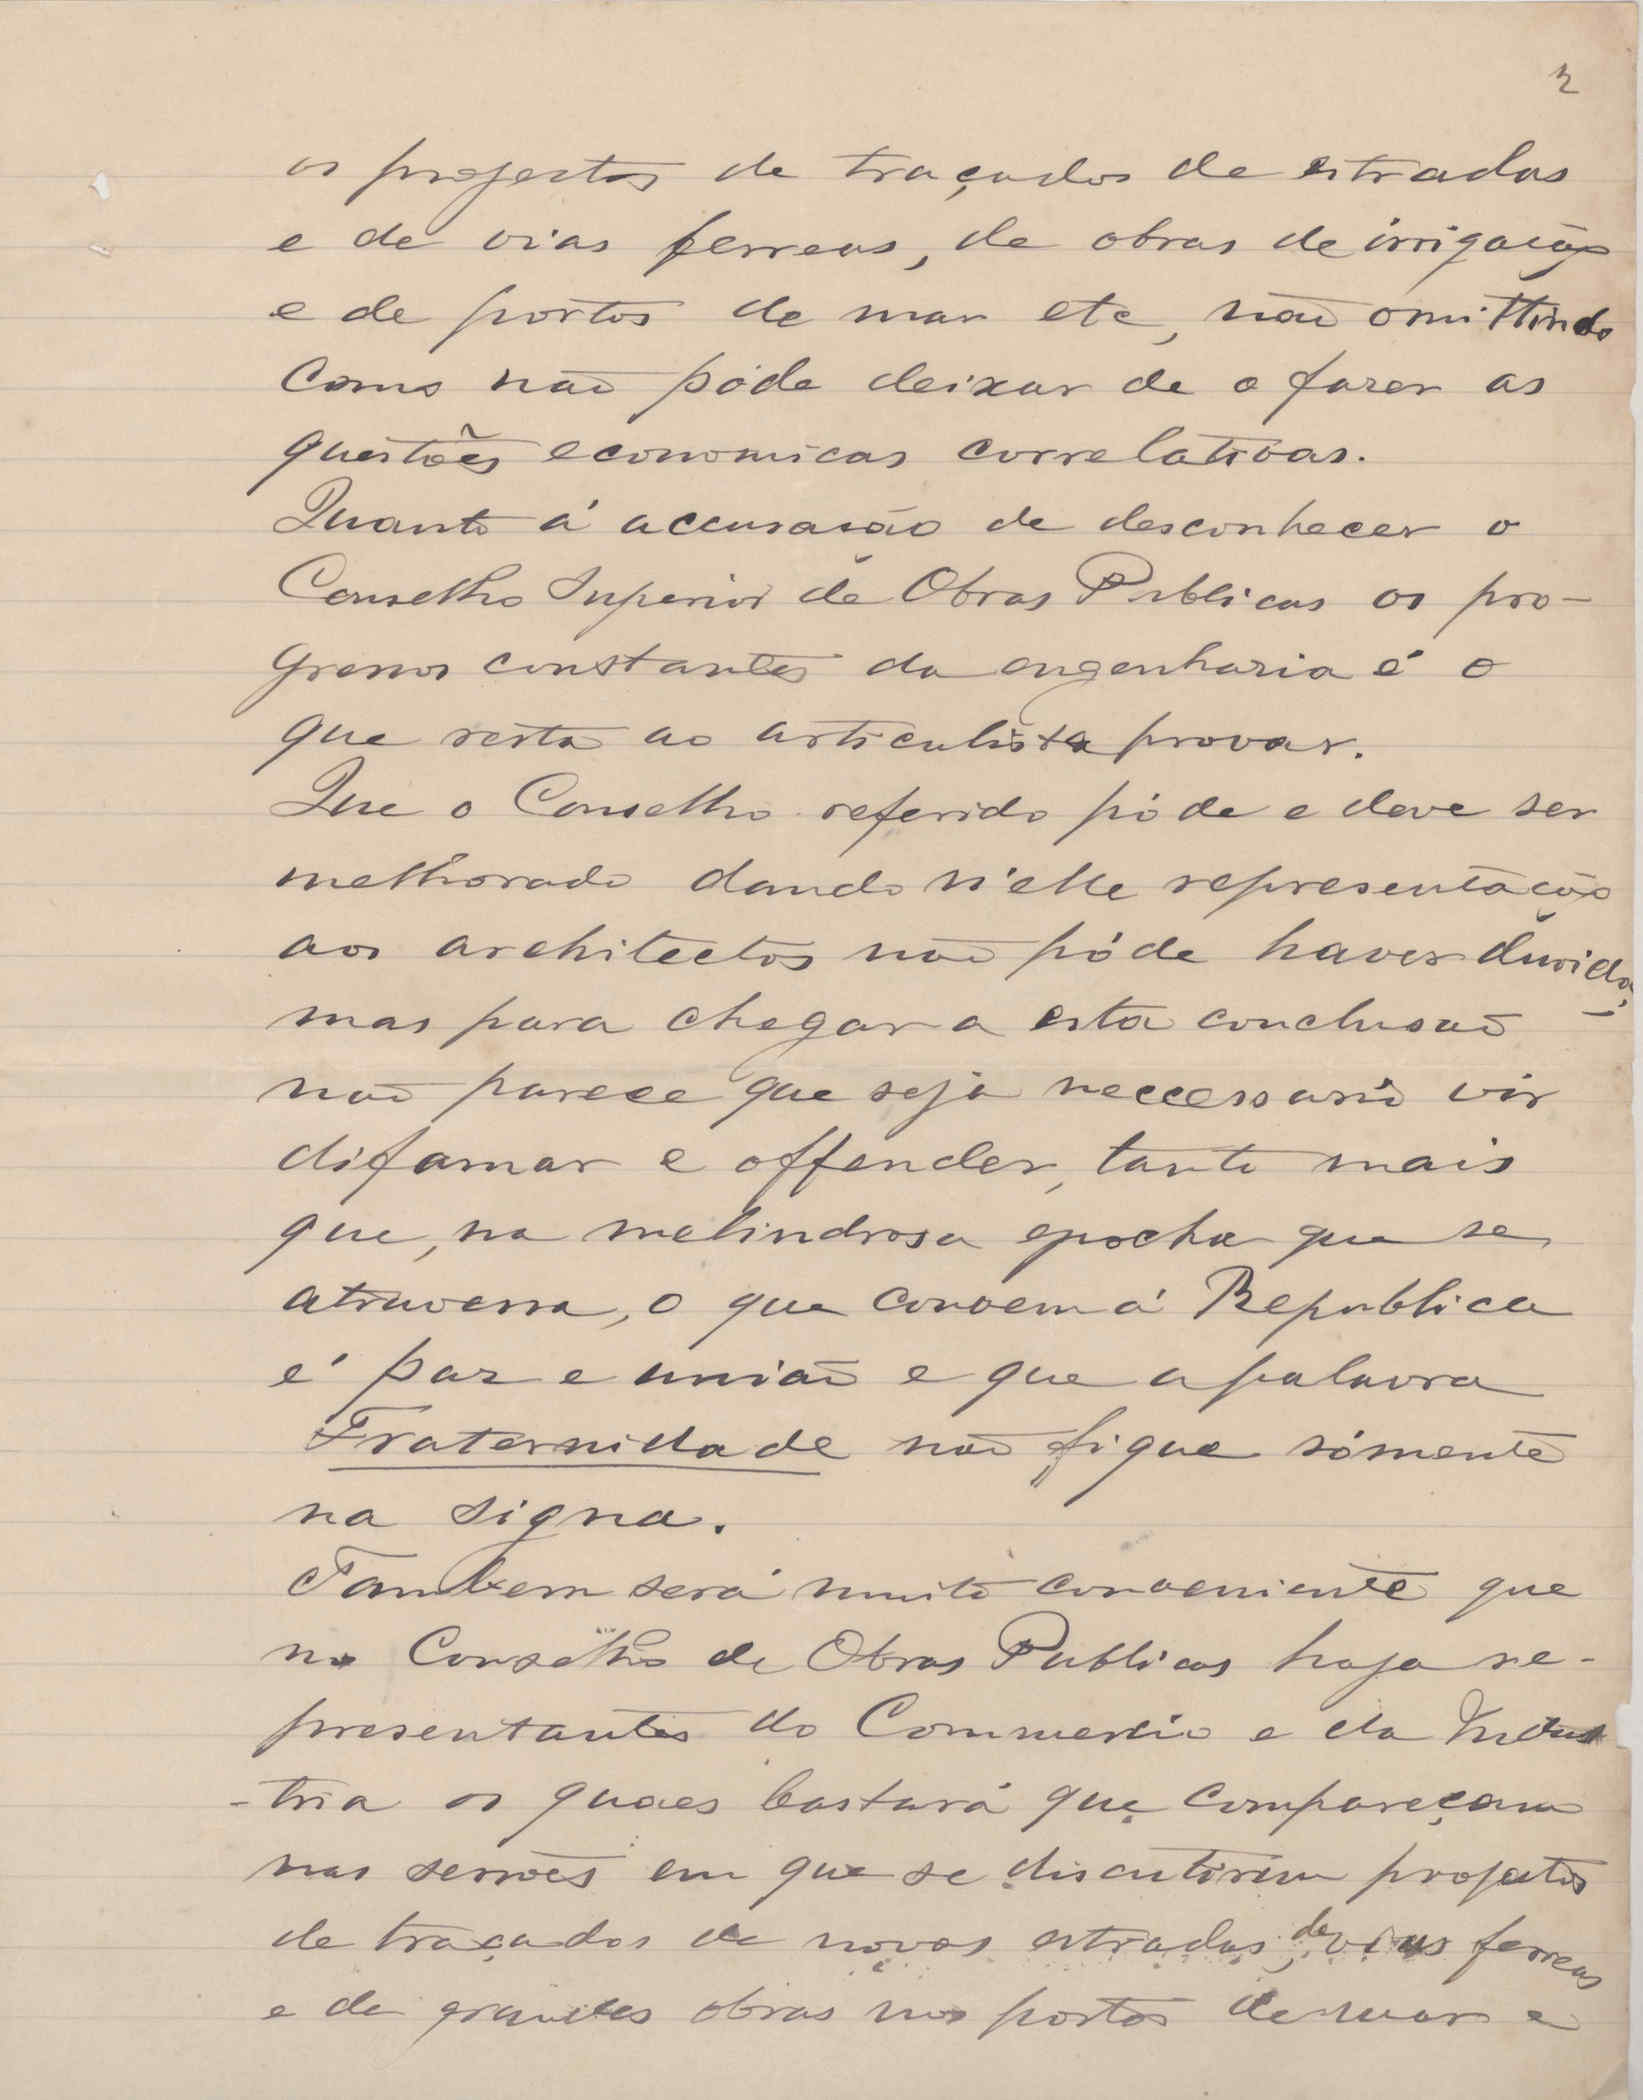 2
os projectos de traçados de estradas
e de vias ferreas, de obras de irrigação
e de portos de mar etc, não omittindo
como não póde deixar de o fazer as
questões economicas correlativas.
Quanto á accusação de desconhecer o
Conselho Superior de Obras Publicas os pro-
gressos constantes da engenharia é o
que resta ao articulista provar.
Que o Conselho referido póde e deve ser
melhorado dando n'elle representação
aos architectos não póde haver duvida,
mas para chegar a esta conclusão
não parece que seja neccessario vir
difamar e offender, tanto mais
que, na melindrosa epocha que se
atravessa, o que convem á Republica
é paz e união e que a palavra
Fraternidade não fique sómente
na signa.
Tambem será muito conveniente que
no Conselho de Obras Publicas haja re-
presentantes do Commercio e da Indus
-tria os quaes bastará que compareçam
nas sessões em que se discutirem projectos
de traçados de novas estradas, de vias ferreas
e de grandes obras nos portos de mar e